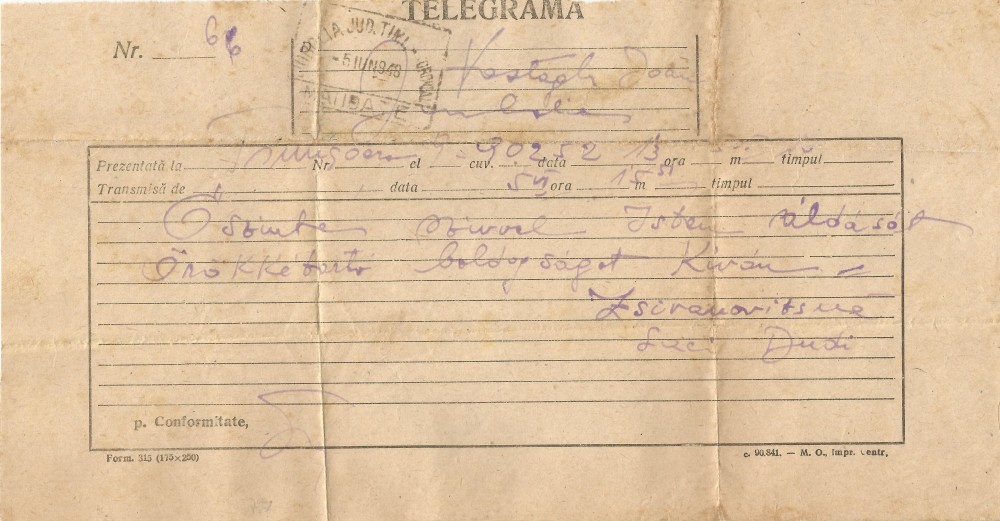 TELEGRAMA
Nr. 66
- 5 IUN 948
Ioan
Jimbolia
Prezentată la Timișoara Nr. el cuv. 9 data 30252 13 ora m timpul
Transmisă de data 5 VI ora 15 m timpul
Őszinte szívvel Isten áldását
Örökkétartó boldogságot Kíván -
Zsivanovitsné
Laci Dudi
p. Conformitate,
Form. 315 (175×250)
c. 90.841. — M. O., Impr. Centr,